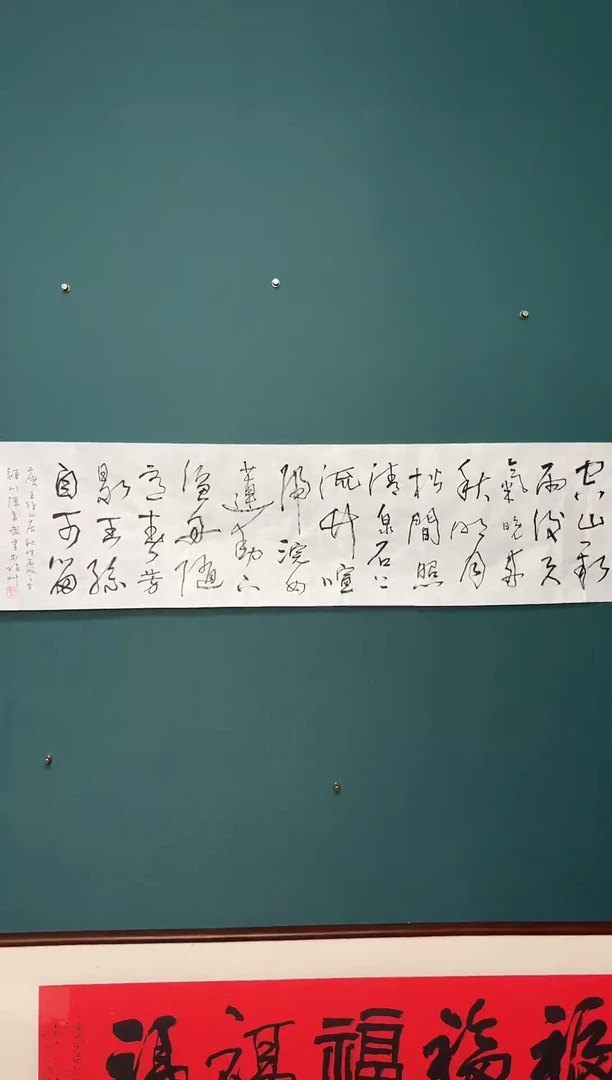 空山新
雨後天
氣晚來
秋明月
松間照
清泉石上
流竹喧
歸浣女
蓮動下
漁舟随
意春芳
歇王孫
自可留
唐王維山居秋暝
福福福福福